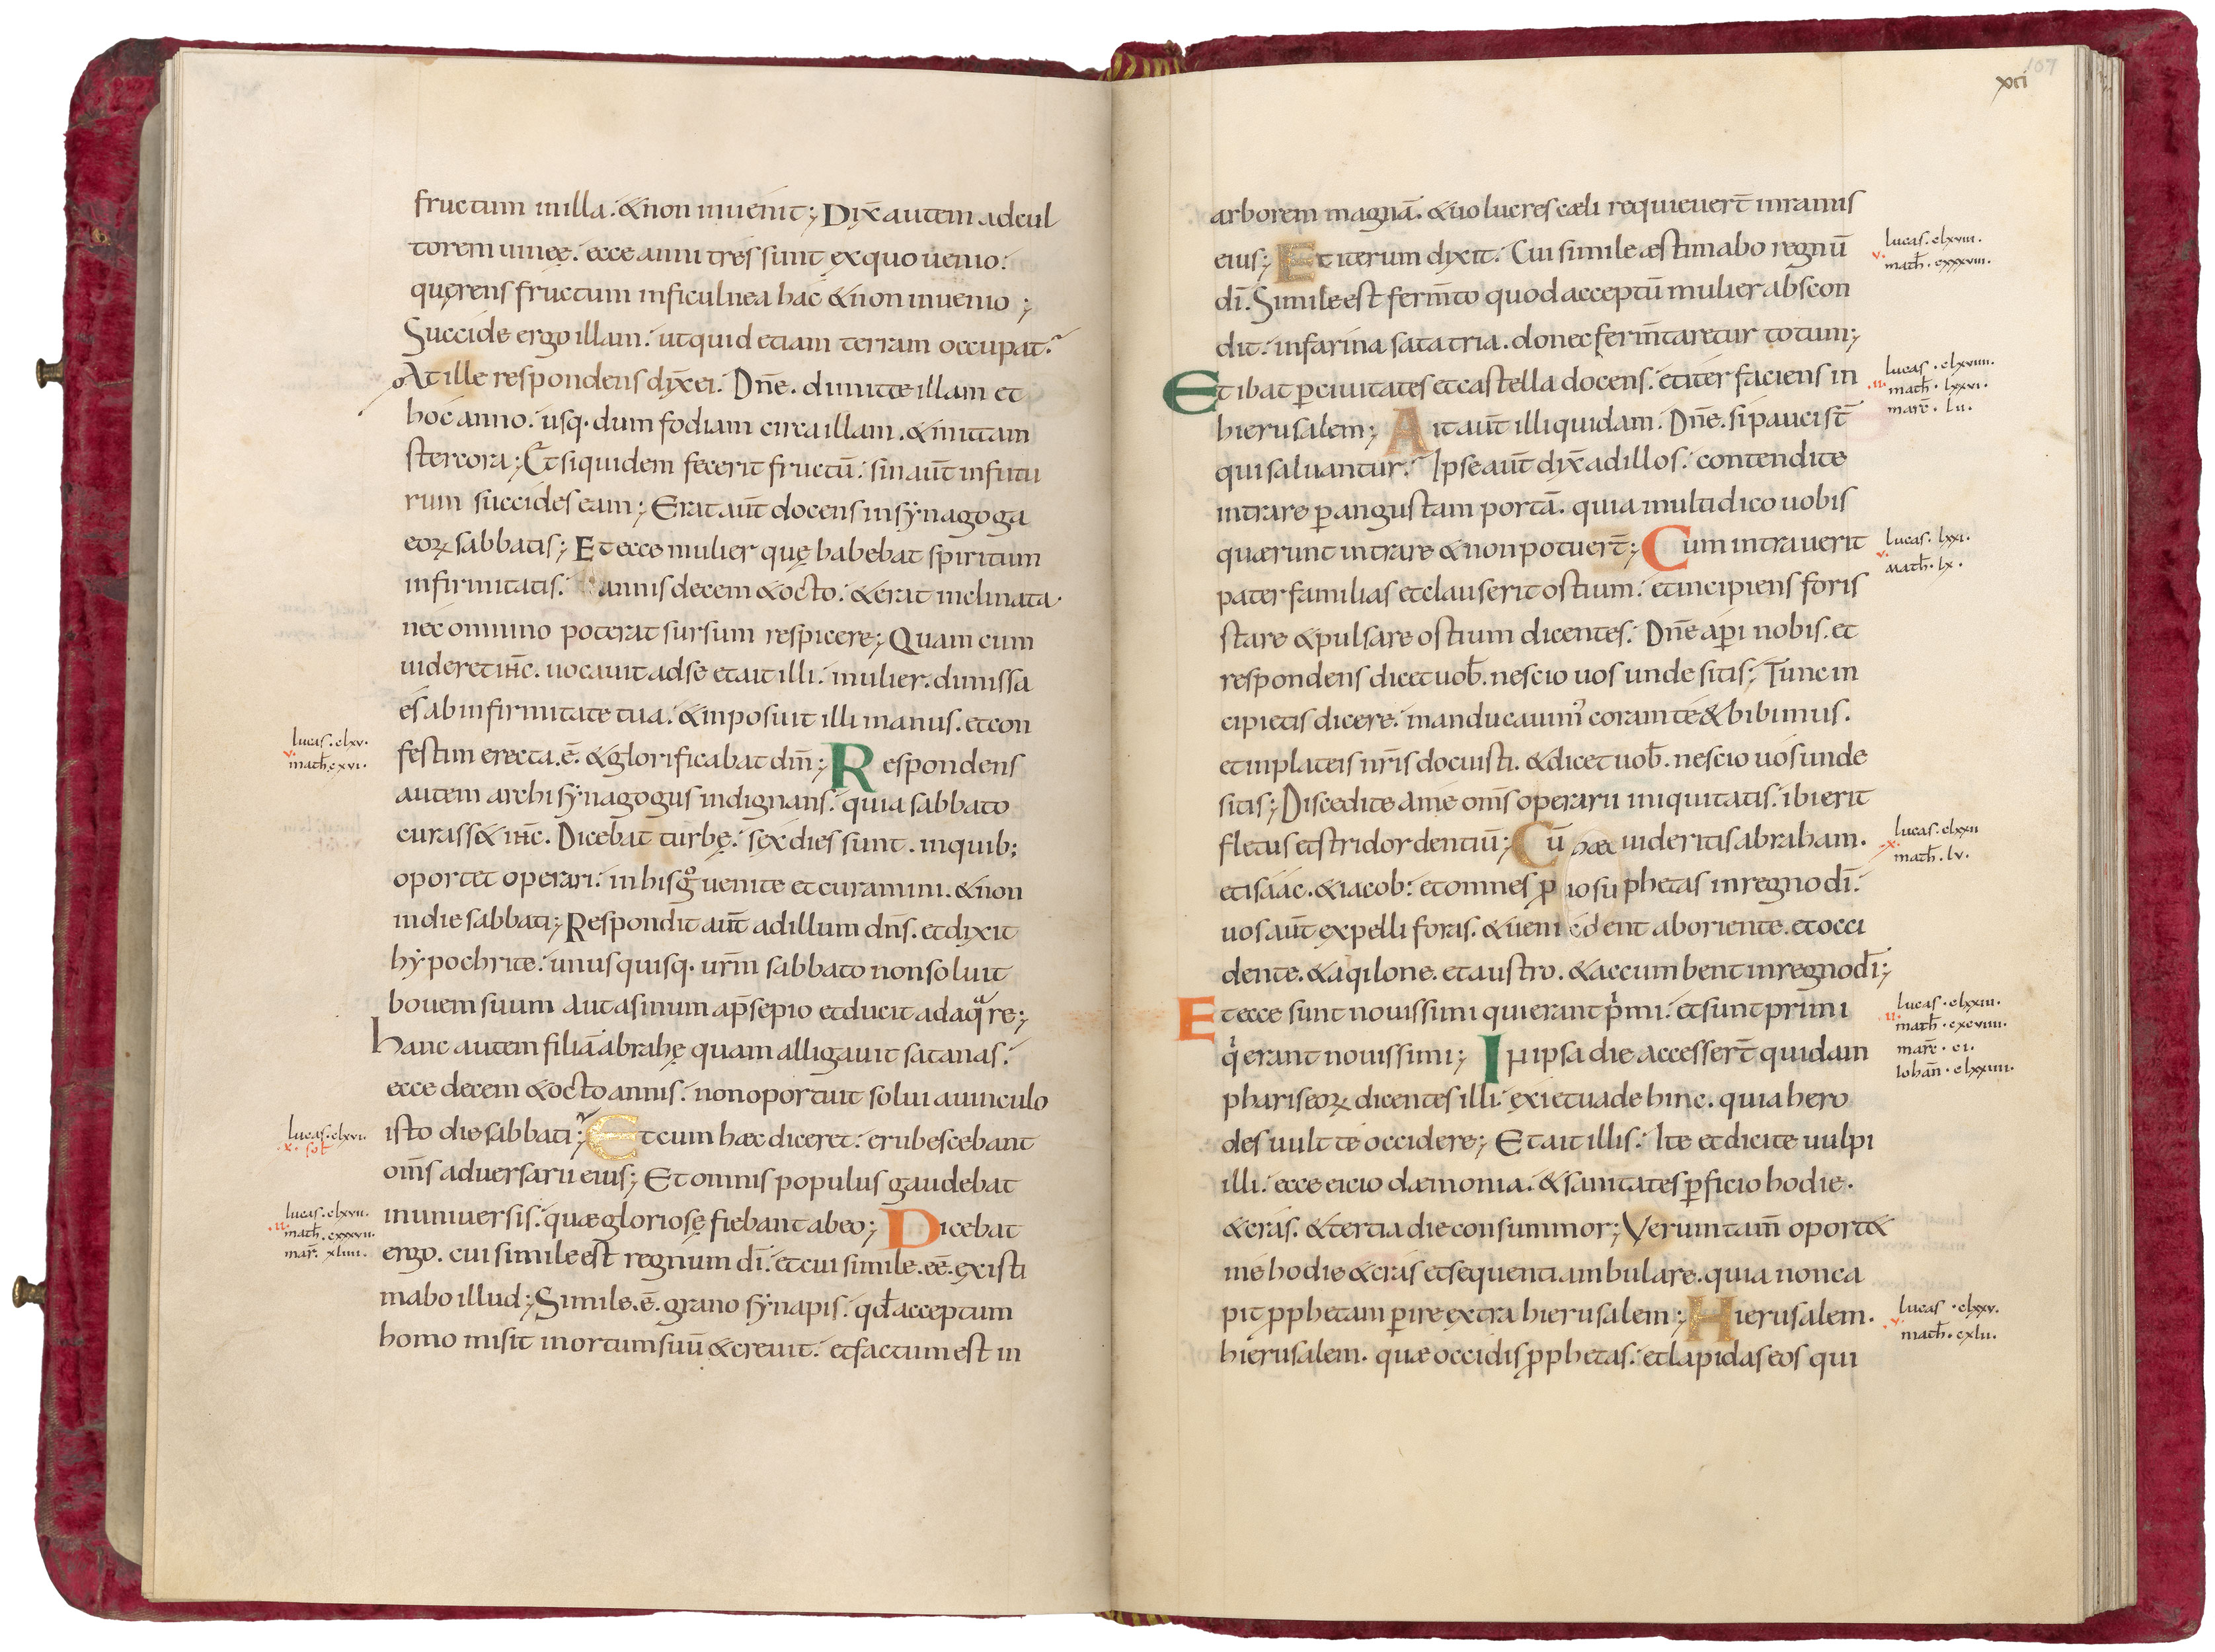 fructum in illa. & non inuenit; Dix̄ autem ad cul
torem uineę. ecce anni tres sunt ex quo uenio.
quęrens fructum in ficulnea hac & non inuenio;
Succide ergo illam. ut quid etiam terram occupat.
At ille respondens dix̄ ei. Dn̄e. dimitte illam et
hoc anno. usq. dum fodiam circa illam. & mittam
stercora; Et siquidem fecerit fructū. sin aūt in futu
rum succides eam; Erat aūt docens in synagoga
eoꝝ sabbatis; Et ecce mulier quę habebat spiritum
infirmitatis. annis decem & octo. & erat inclinata.
nec omnino poterat sursum respicere; Quam cum
uideret ih̄c. uocauit ad se et ait illi. mulier. dimissa
es ab infirmitate tua. & inposuit illi manus. et con
lucas. clxv.
v.
math̄. cxvi.
festim erecta. ē. & glorificabat dm̄; Respondens
autem archisynagogus indignans. quia sabbato
curass& ih̄c. Dicebat turbę. sex dies sunt. in quib;
oportet operari. in his gͦ uenite et curamini. & non
in die sabbati; Respondit aūt ad illum dn̄s. et dixit
hypochrite. unusquisq. ur̄m sabbato non soluit
bouem suum aut asinum a p̄sepio et ducit adaqᷓre;
hanc autem filiā abrahę quam alligauit satanas.
ecce decem & octo annis. non oportuit solui a uinculo
lucas. clxvi.
x. sol̄
isto die sabbati; Et cum hæc diceret. erubescebant
om̄s aduersarii eius; Et omnis populus gaudebat
lucas. clxvii.
ii.
math̄. cxxxvii.
mar̄. xliiii.
in uniuersis. quæ gloriosę fiebant ab eo; Dicebat
ergo. cui simile est regnum dī. et cui simile. eē. existi
mabo illud; Simile. ē. grano synapis. qd̄ acceptum
homo misit in ortum suū & creuit. et factum est in
107
xci
arborem magnā. & uolucres cæli requieuer̄t in ramis
lucas. clxviii.
v.
math̄. cxxxviii.
eius; Et iterum dixit. Cui simile æstimabo regnū
dī. Simile est ferm̄to quod acceptū mulier abscon
dit. in farina sata tria. donec ferm̄taretur totum;
lucas. clxviiii.
ii.
math̄. lxxvi.
marc̄. lii.
Et ibat ꝑ ciuitates et castella docens. et iter faciens in
hierusalem; Ait aūt illi quidam. Dn̄e. si pauci st̄
qui saluantur. Ipse aūt dix̄ ad illos. contendite
intrare ꝑ angustam portā. quia multi dico uobis
lucas. lxxi.
v.
math̄. lx.
quærunt intrare & non potuer̄t; Cum intrauerit
pater familias et clauserit ostium. et incipiens foris
stare & pulsare ostium dicentes. Dn̄e aꝑi nobis. et
respondens dicet uob̄. nescio uos unde sitis; Tunc in
cipietis dicere. manducauim᾿ coram te & bibimus.
et in plateis nr̄is docuisti. & dicet uob̄. nescio uos unde
sitis; Discedite a me om̄s operarii iniquitatis. ibi erit
lucas. clxxii
x.
math̄. lv.
fletus et stridor dentiū; Cū uideritis abraham.
et isáác. & iacob. et omnes ꝓphetas in regno dī.
uos aūt expelli foras. & uenient ab oriente. et occi
dente. & aqilone. et austro. & accumbent in regno dī;
lucas. clxxiii.
ii.
math̄. cxcviiii.
marc̄. ci.
Iohan̄. clxxiiii.
Et ecce sunt nouissimi qui erant pͥmi. et sunt primi
qͥ erant nouissimi; In ipsa die accesser̄t quidam
phariseoꝝ dicentes illi. exi et uade hinc. quia hero
des uult te occidere; Et ait illis. Ite et dicite uulpi
illi. ecce eicio dæmonia. & sanitates ꝑficio hodie.
& cras. & tertia die consummor; Verumtam̄ oport&
me hodie & cras et sequenti ambulare. quia non ca
lucas. clxxv.
v.
math̄. cxlii.
pit ꝓphetam ꝑire extra hierusalem; Hierusalem.
hierusalem. quæ occidis ꝓphetas. et lapidas eos qui